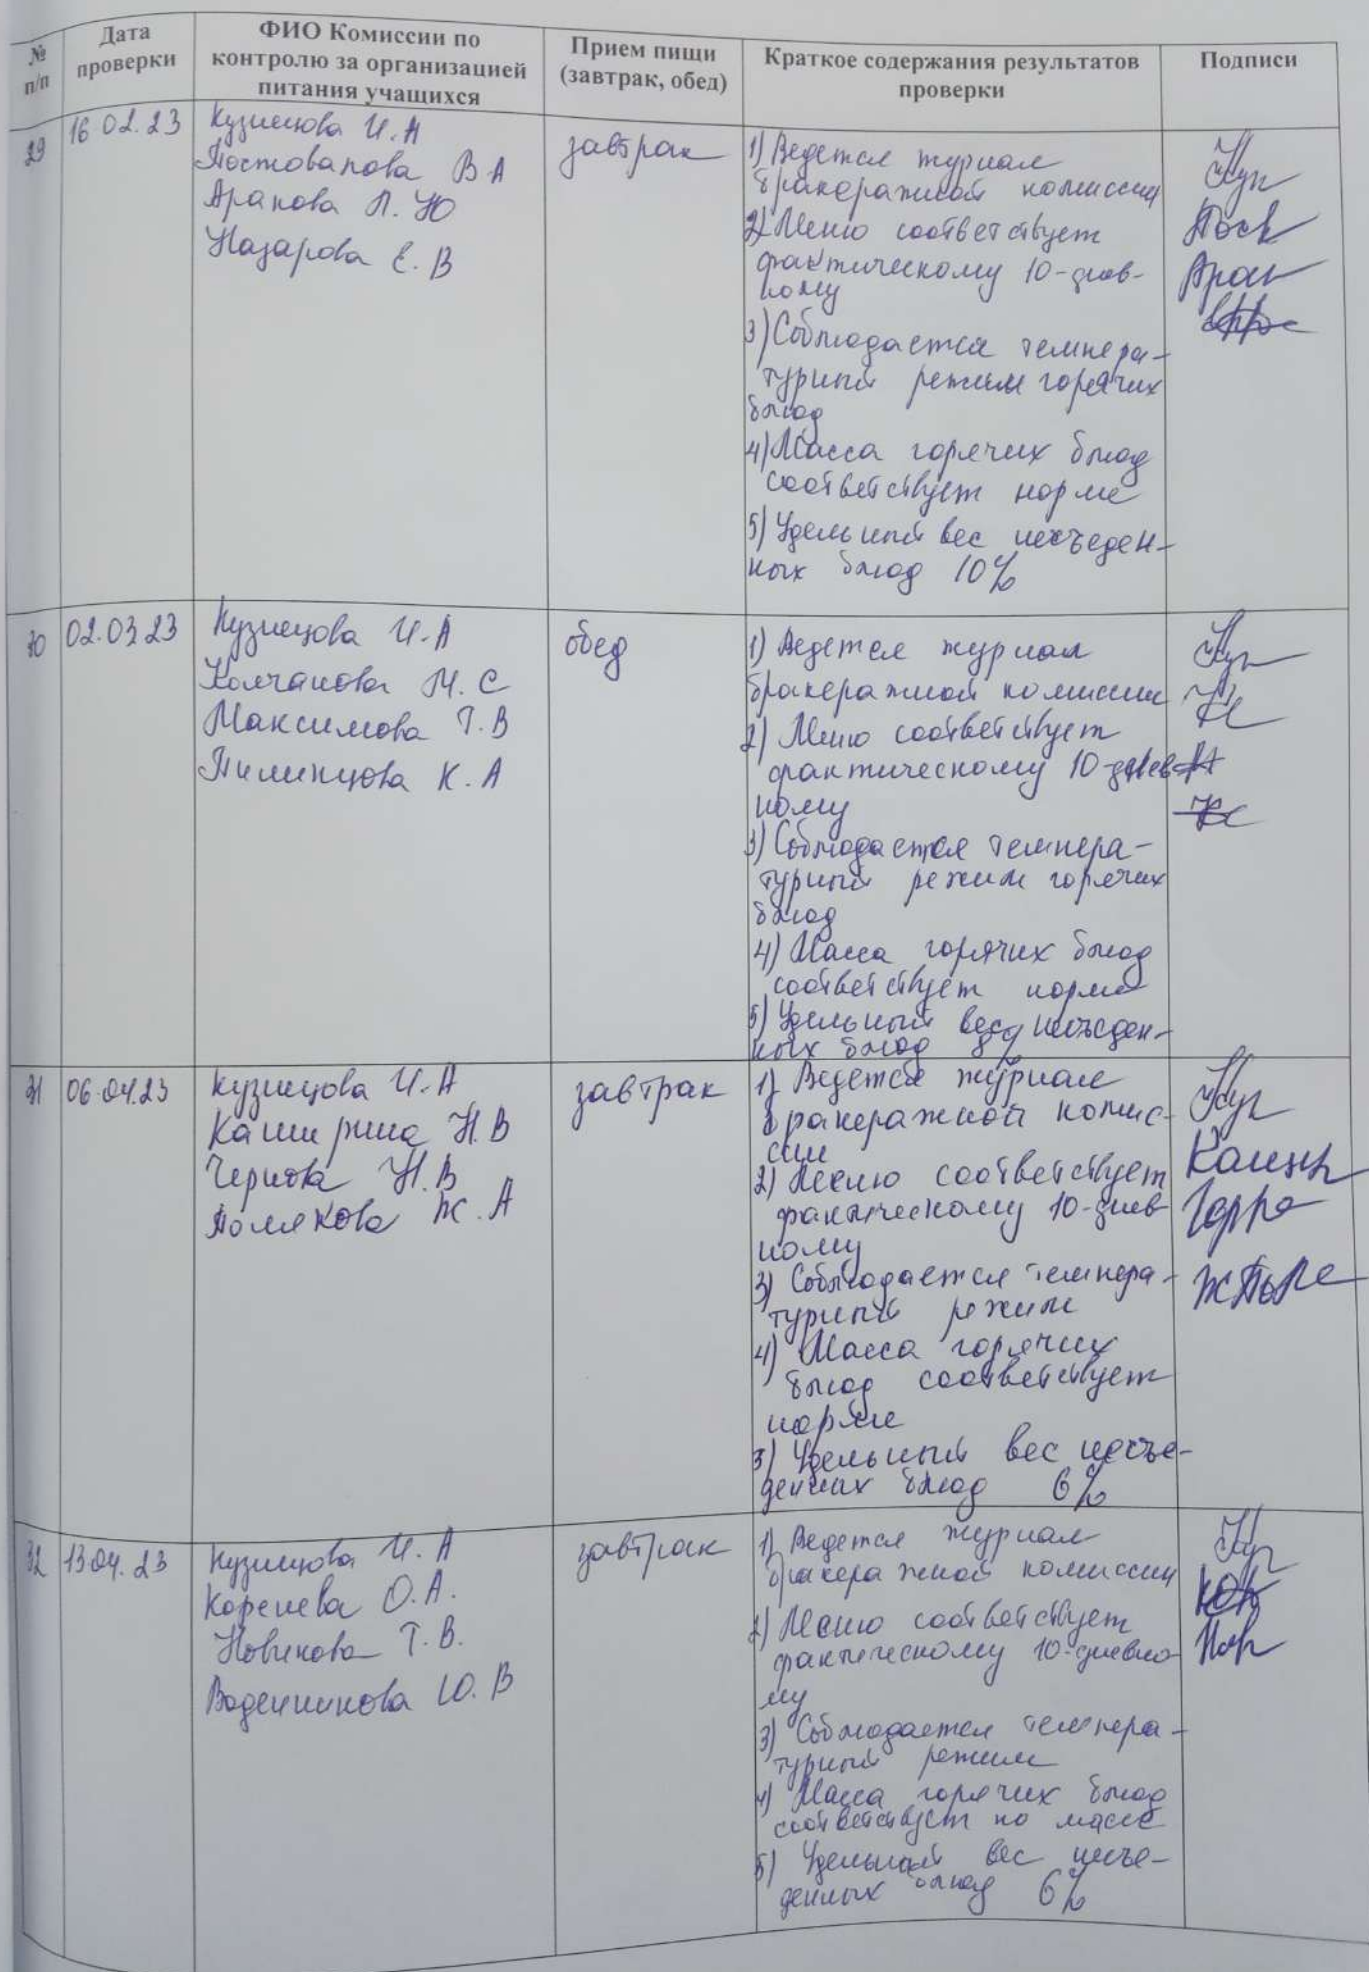 № п/п
Дата проверки
ФИО Комиссии по контролю за организацией питания учащихся
Прием пищи (завтрак, обед)
Краткое содержания результатов проверки
Подписи
29
16.02.23
Кузнецова И.А
Постовалова В А
Арапова Л. Ю
Назарова Е. В
завтрак
1) Ведется журнал
бракеражной комиссии
2) Меню соответствует
фактическому 10-днев-
ному
3) Соблюдается темпера-
турный режим горячих
блюд
4) Масса горячих блюд
соответствует норме
5) Удельный вес несъеден-
ных блюд 10%
30
02.03 23
Кузнецова И.А
Колчанова М. С
Максимова Т.В
Пилипцова К. А
обед
1) Ведется журнал
бракеражной комиссии
2) Меню соответствует
фактическому 10-днев
ному
3) Соблюдается темпера-
турный режим горячих
блюд
4) Масса горячих блюд
соответствует норме
5) Удельный вес несъеден-
ных блюд
31
06.04.23
Кузнецова И.А
Каширина Н.В
Чернова Н.В
Полякова Ж. А
завтрак
1) Ведется журнал
бракеражной комис-
сии
2) Меню соответствует
фактическому 10-днев
ному
3) Соблюдается темпера-
турный режим
4) Масса горячих
блюд соответствует
норме
5) Удельный вес несъе-
денных блюд 6%
32
13.04.23
Кузнецова И. А
Коренева О.А.
Новикова Т. В.
Воденникова Ю. В
завтрак
1) Ведется журнал
бракеражной комиссии
2) Меню соответствует
фактическому 10-дневно
му
3) Соблюдается темпера-
турный режим
4) Масса горячих блюд
соответствует по массе
5) Удельный вес несъе-
денных блюд 6%